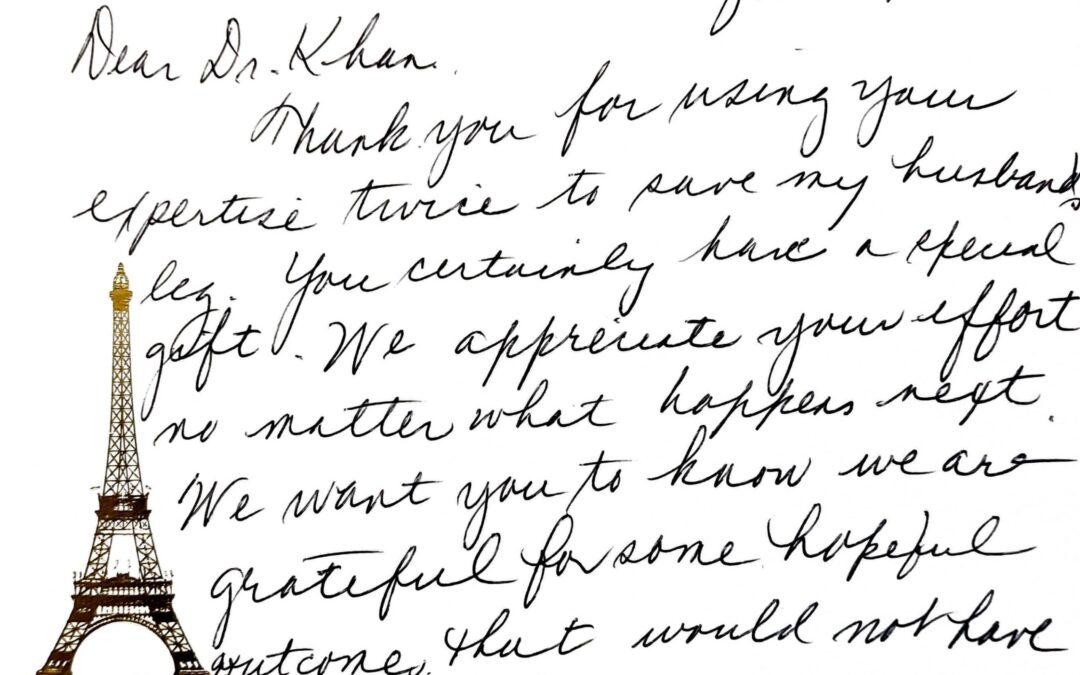 Dear Dr. Khan.
Thank you for using your
expertise twice to save my husband's
leg. You certainly have a special
gift. We appreciate your effort
no matter what happens next.
We want you to know we are
grateful for some hopeful
outcome, that would not have